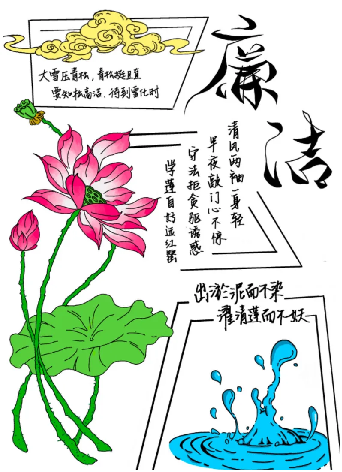 廉洁
大雪压青松，青松挺且直
要知松高洁，待到雪化时
清风两袖一身轻
早夜敲门心不惊
守法拒贪驱诱惑
学莲自好远红罂
出淤泥而不染
濯清莲而不妖